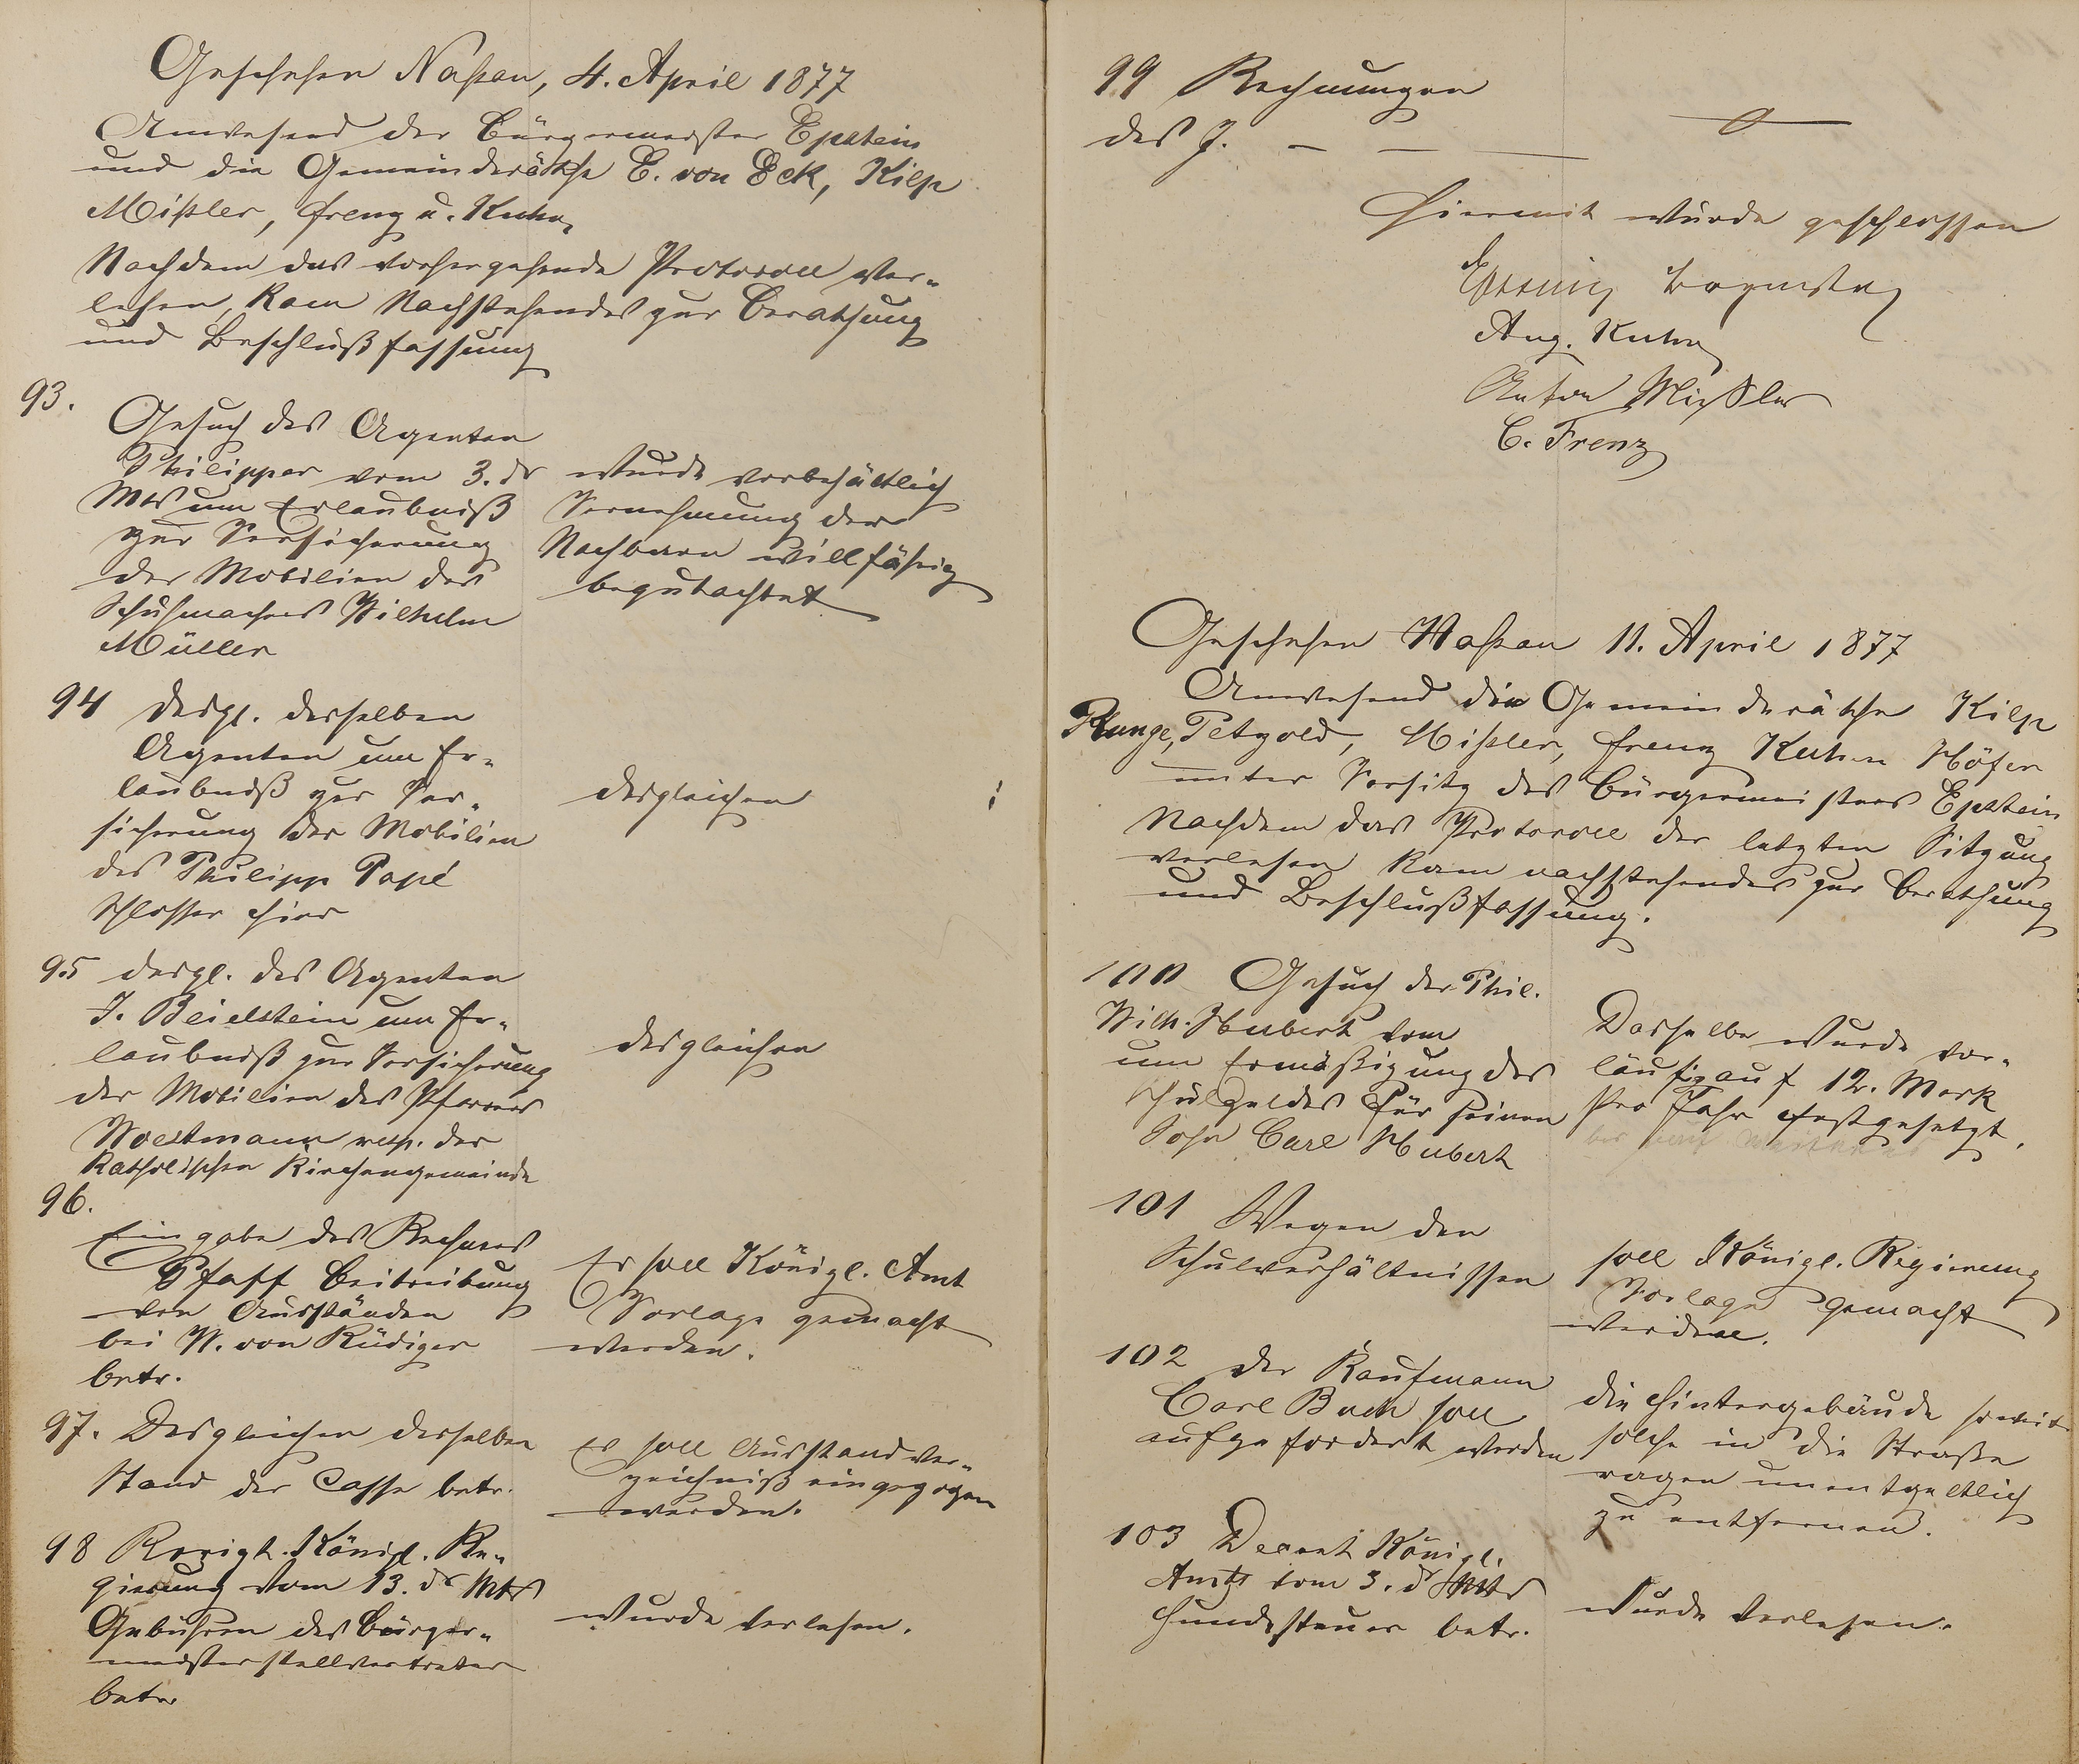 Geschehen Naßau, 4. April 1877
Anwesend der Bürgermeister Epstein
und die Gemeinderäthe E. von Eck, Kilp
Mißler, Frenz u. Kuhn
Nachdem das vorhergehende Protocoll ver-
lesen, kam Nachstehendes zur Berathung
und Beschlußfassung
93.
Gesuch des Agenten
Philippar vom 3. ds
Mts um Erlaubniß
zur Versicherung
der Mobilien des
Schuhmachers Wilhelm
Müller
wurde vorbehältlich
Vernehmung der
Nachbarn willfährig
begutachtet
94 desgl. desselben
Agenten um Er-
laubniß zur Ver-
sicherung der Mobilien
des Philipp Papé
Schlosser hier
desgleichen
95 desgl. des Agenten
J. Beielstein um Er-
laubniß zur Versicherung
der Mobilien des Pfarrers
Woestmann resp. der
Katholischen Kirchengemeinde
desgleichen
96.
Eingabe des Rechners
Pfaff Beitreibung
von Ausständen
bei W. von Rüdiger
betr.
Es soll Königl. Amt
Vorlage gemacht
werden.
97. Desgleichen desselben
Stand der Casse betr.
Es soll Ausstandver-
zeichniß eingezogen
werden.
98 Königl. Re-
gierung vom 13. ds Mts
Gebühren des Bürger-
meisterstellvertreter
betr.
wurde verlesen.
99 Rechnungen
des J. — — —
Hiermit wurde geschlossen
Aug. Kuhn
Anton Mißler
C. Frenz
Geschehen Naßau 11. April 1877
Anwesend die Gemeinderäthe Kilp
Plunge, Petzold, Mißler, Frenz Kuhn Höfer
unter Vorsitz des Bürgermeisters Epstein
Nachdem das Protocoll der letzten Sitzung
verlesen kam nachstehendes zur Berathung
und Beschlußfassung.
100 Gesuch des Phil.
Wilh. Hubert vom
um Ermäßigung des
Schulgeldes für seinen
Sohn Carl Hubert
Dasselbe wurde vor-
läufig auf 12. Mark
pro Jahr festgesetzt.
101 Wegen den
Schulverhältnissen
soll Königl. Regierung
Vorlage gemacht
werden.
102 der Kaufmann
Carl Buch soll
aufgefordert werden
die Hintergebäude soweit
solche in die Straße
ragen unentgeltlich
zu entfernen.
103 Decret Königl.
Amts vom 3. ds Mts
Hundesteuer betr.
wurde verlesen.